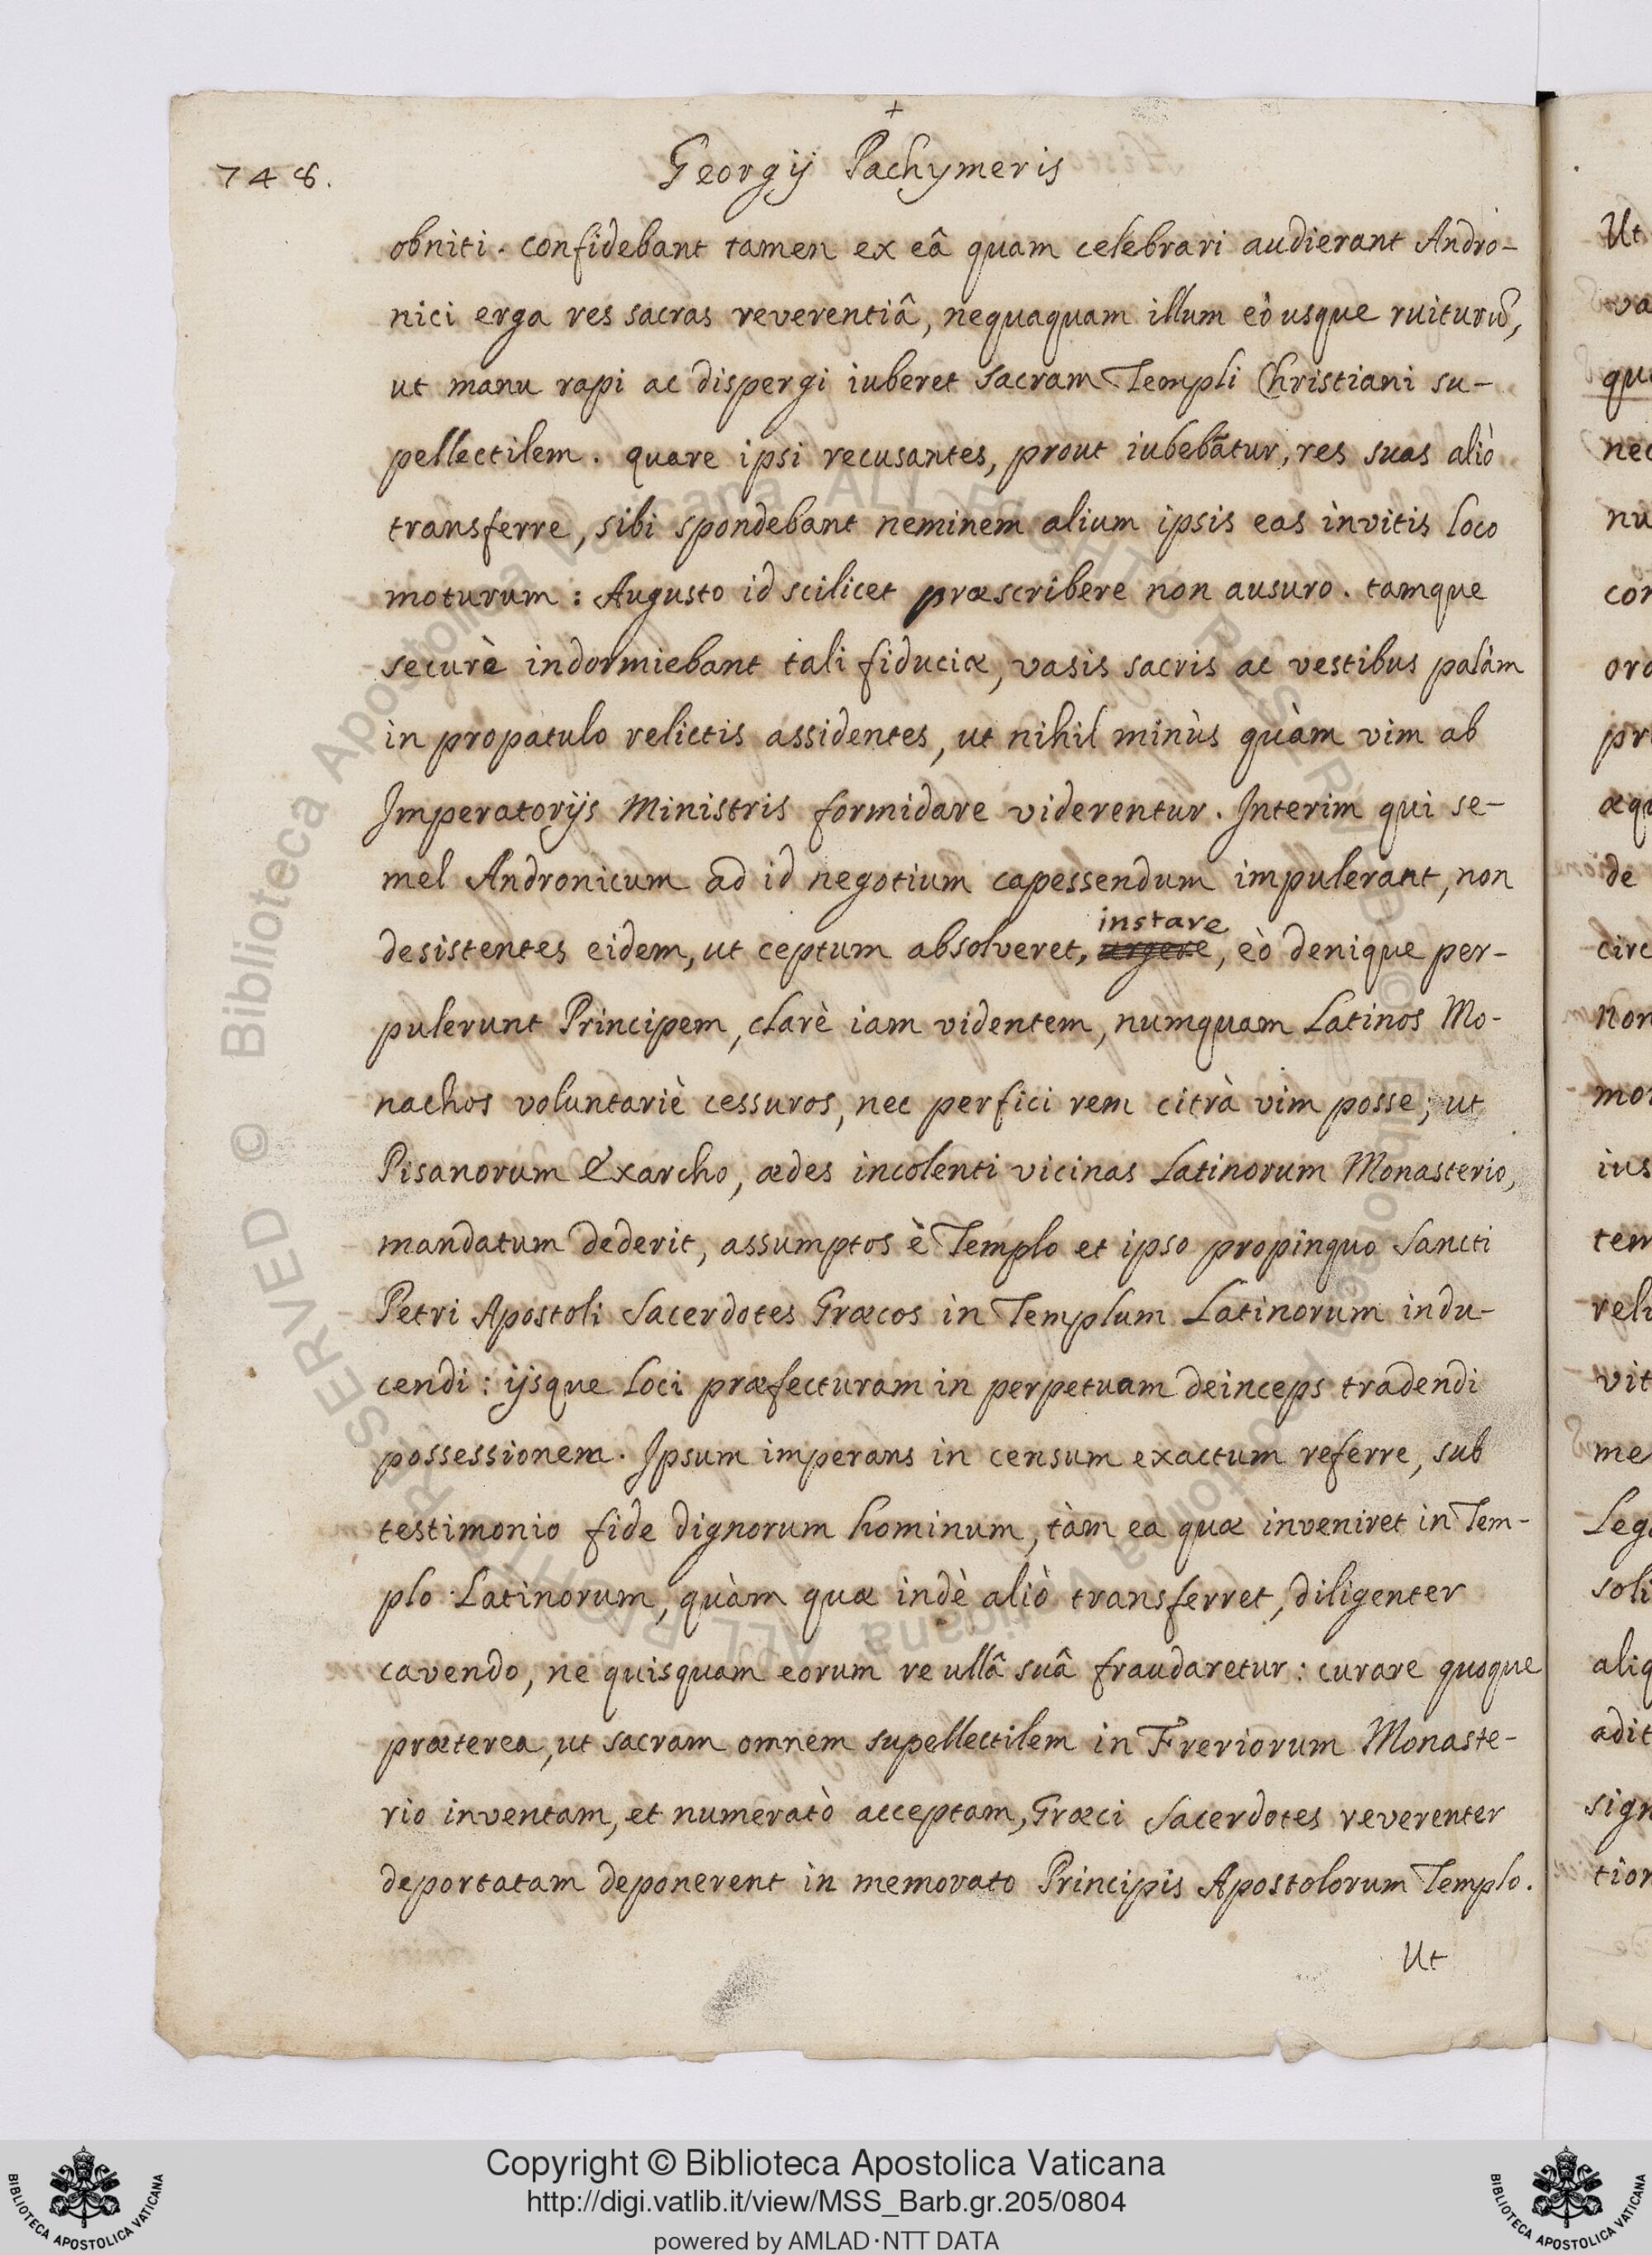 +
748. Georgij Pachymeris
obniti. confidebant tamen ex eâ quam celebrari audierant Andro-
nici erga res sacras reverentiâ, nequaquam illum eò usque ruiturũ,
ut manu rapi ac dispergi iuberet sacram Templi Christiani su-
pellectilem. quare ipsi recusantes, prout iubebãtur, res suas aliò
transferre, sibi spondebant neminem alium ipsis eas invitis loco
moturum: Augusto id scilicet præscribere non ausuro. tamque
securè indormiebant tali fiduciæ, vasis sacris ac vestibus palàm
in propatulo relictis assidentes, ut nihil minùs quàm vim ab
Imperatorijs Ministris formidare viderentur. Interim qui se-
mel Andronicum ad id negotium capessendum impulerant, non
instare
desistentes eidem, ut ceptum absolveret, urgere, eò denique per-
pulerunt Principem, clarè iam videntem, numquam Latinos Mo-
nachos voluntariè cessuros, nec perfici rem citrà vim posse; ut
Pisanorum Exarcho, ædes incolenti vicinas Latinorum Monasterio,
mandatum dederit, assumptos è Templo et ipso propinquo Sancti
Petri Apostoli Sacerdotes Græcos in Templum Latinorum indu-
cendi: ijsque loci præfecturam in perpetuam deinceps tradendi
possessionem. Ipsum imperans in censum exactum referre, sub
testimonio fide dignorum hominum, tàm ea quæ inveniret in Tem-
plo Latinorum, quàm quæ indè aliò transferret, diligenter
cavendo, ne quisquam eorum re ullâ suâ fraudaretur: curare quoque
præterea, ut sacram omnem supellectilem in Freriorum Monaste-
rio inventam, et numeratò acceptam, Græci Sacerdotes reverenter
deportatam deponerent in memorato Principis Apostolorum Templo.
Ut
Copyright © Biblioteca Apostolica Vaticana
http://digi.vatlib.it/view/MSS_Barb.gr.205/0804
powered by AMLAD·NTT DATA
BIBLIOTECA APOSTOLICA VATICANA
BIBLIOTECA APOSTOLICA VATICANA